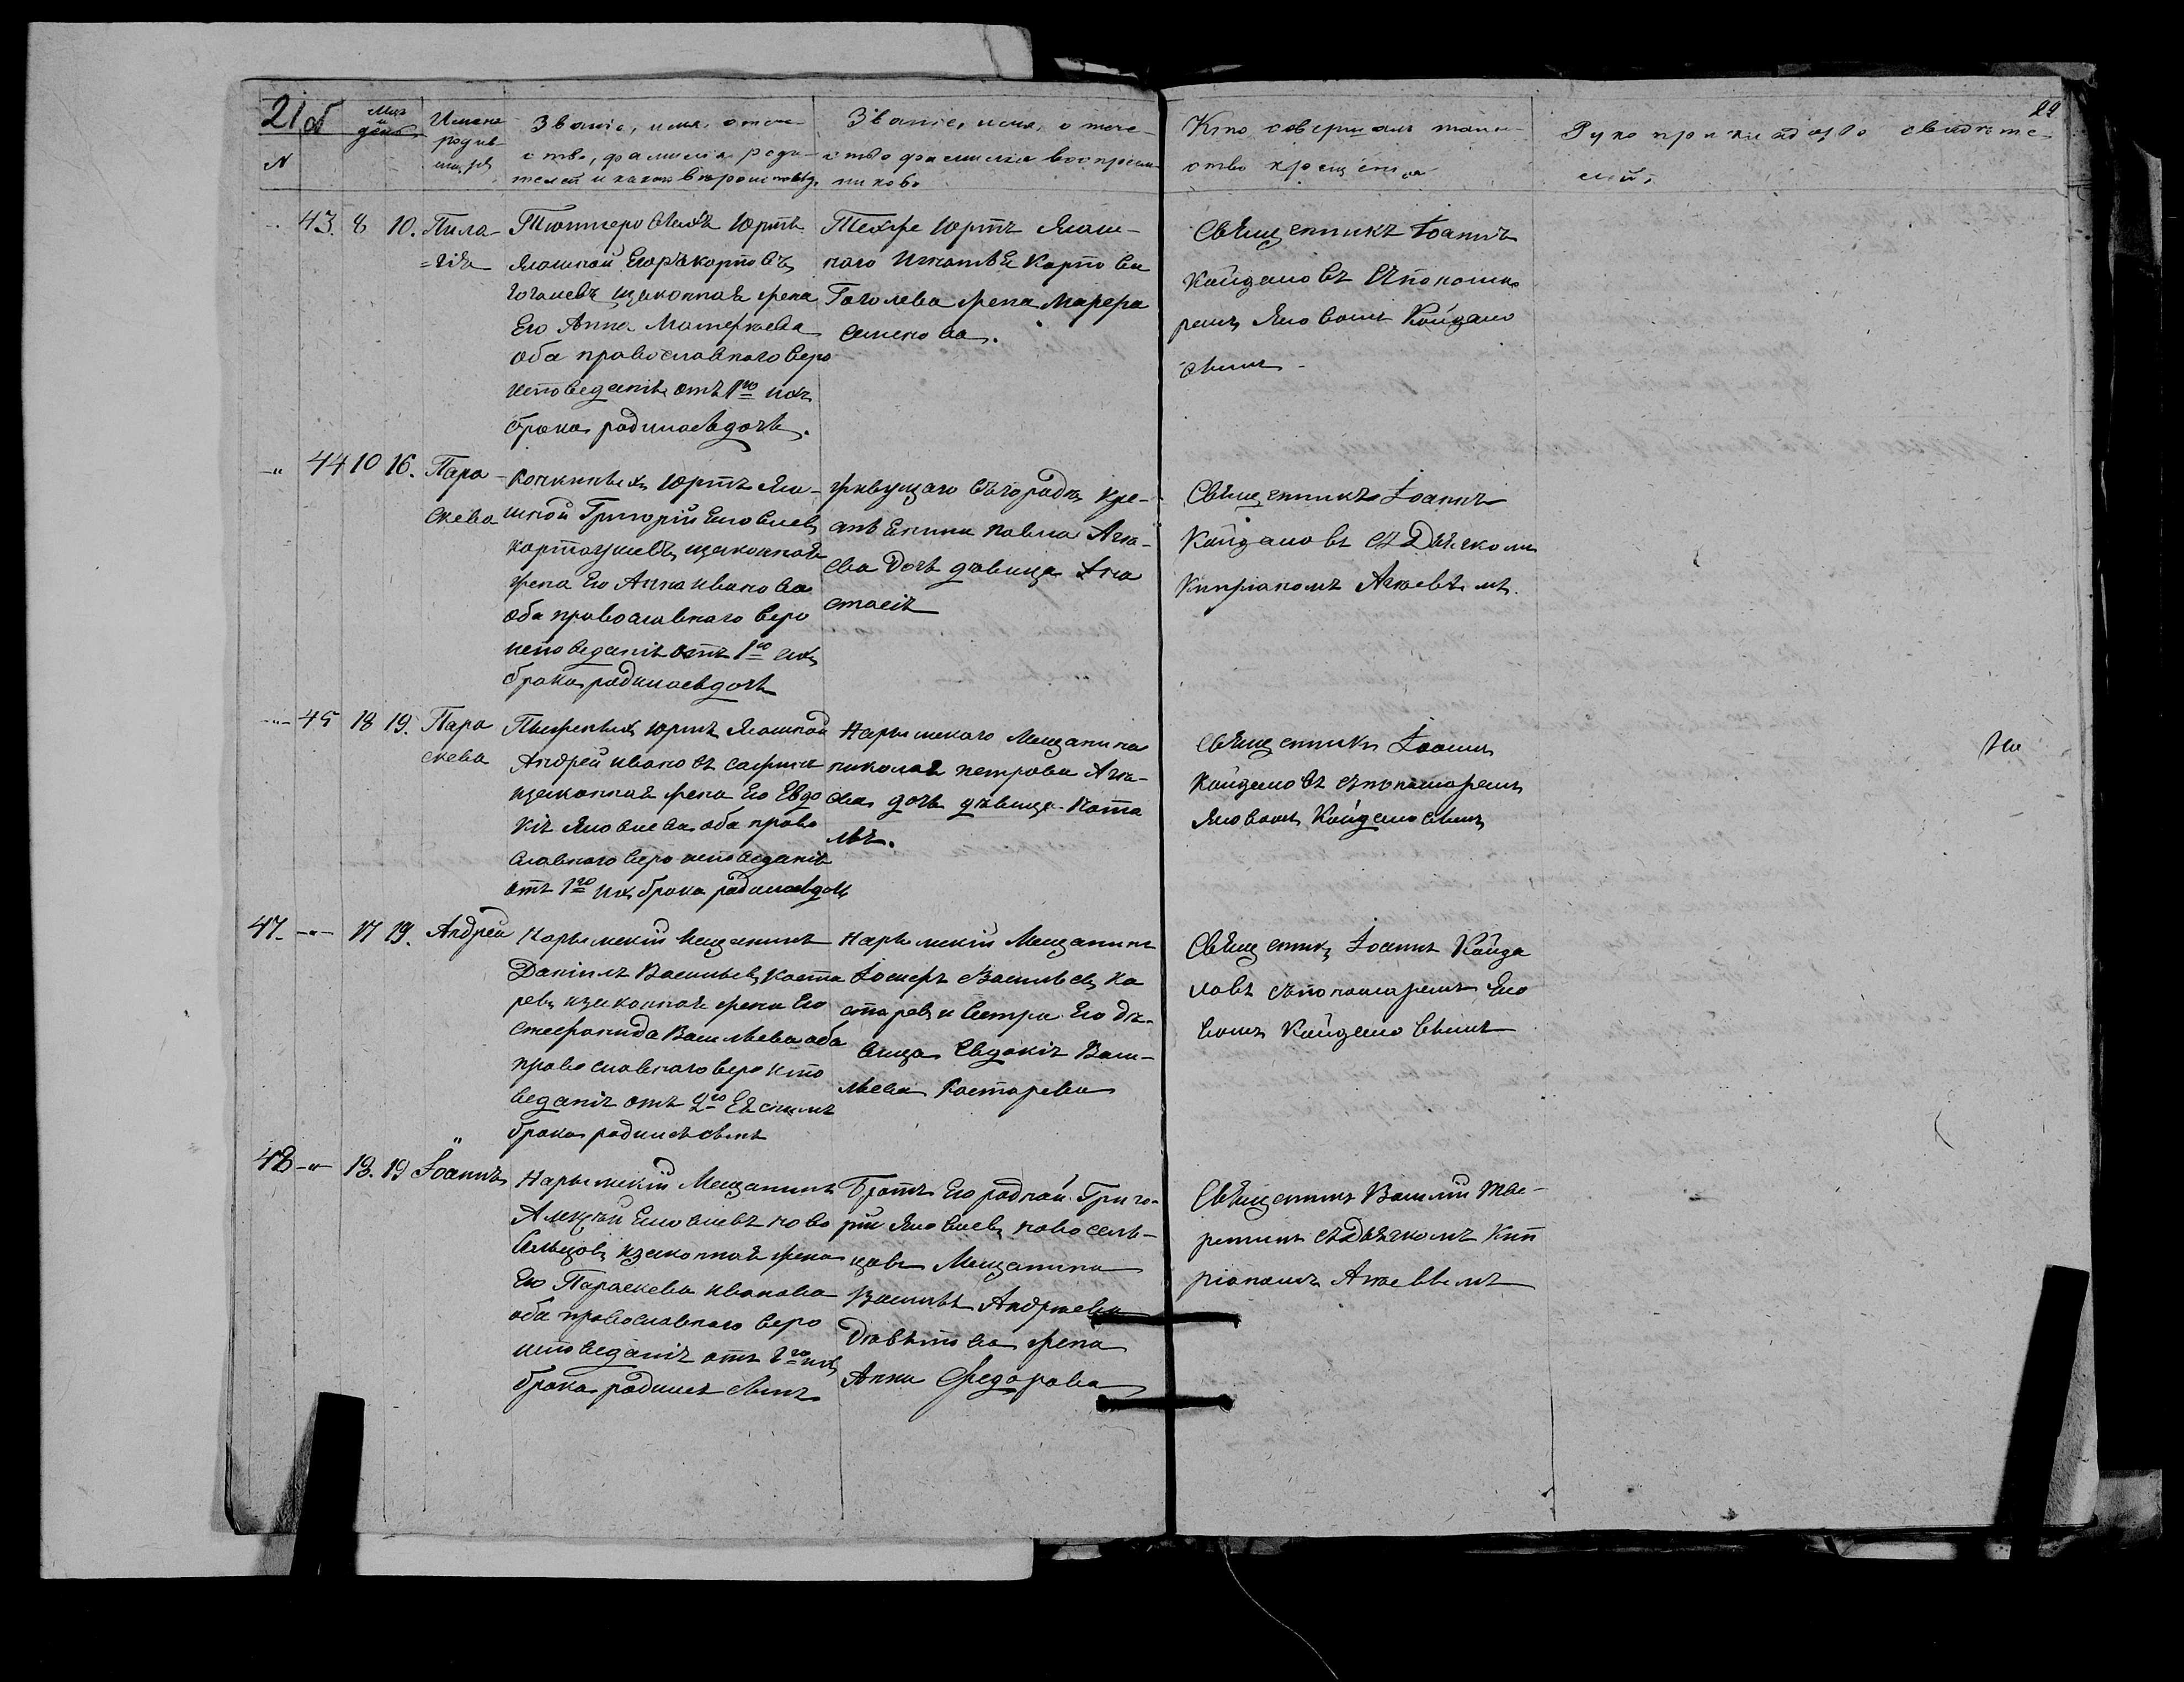 21 об
22
N
Мцъ и день
Имена родив-
шихся
Званіе, имя, отче-
ство, фамилія роди-
телей и какого вѣроисповѣд.
Званіе, имя, отече-
ство фамилія воспріем-
никовъ
Кто совершалъ таин-
ство крещенія
Рукоприкладство свидѣте-
лей,
43. 8 10. Пила-
=гія
юртъ
Ясашной Егоръ Карповъ
Гоголевъ изаконная жена
Его Анна Матфѣева
оба православнаго веро
исповеданія отъ 1го ихъ
брака родилась дочь.
Техже юртъ Ясаш-
наго Игнатья Карпова
Гоголева жена Марфа
Семенова.
Священникъ Іоаннъ
Кайдаловъ съпонома
ремъ Яковомъ Кайдало
вымъ
44 10 16. Пара-
скева
юртъ Яса-
шной Григорій Яковлевъ
изаконная
жена Его Анна Иванова
оба православнаго веро
исповеданія отъ 1го ихъ
брака родилась дочь
живущаго въгородѣ кре-
Павла Ага-
ева дочь дѣвица Ана
стасія
Священникъ Іоаннъ
Кайдаловъ съ Дьячкомъ
Кипріаномъ Агаевымъ.
45 18 19. Пара
скева
юртъ Ясашной
Андрей Ивановъ
изаконная жена Его Евдо
кія Яковлева оба право
славнаго веро исповеданія
отъ 1го ихъ брака родилась дочь
Нарымскаго Мещанина
Николая Петрова Ага-
ева дочь дѣвица Ната
лья.
Священникъ Іоаннъ
Кайдаловъ съпономаремъ
Яковомъ Кайдаловымъ
47. 17 19. Андрей
Нарымскій Мещанинъ
Даніилъ Васильевъ Коста
ревъ изаконная жена Его
Стефанида Васильева оба
православнаго веро испо
веданія отъ 2го
брака родился сынъ
Нарымскій Мещанинъ
Іосифъ Васильевъ Ко
старевъ и сестра Его дѣ-
вица Евдокія Васи-
льева Костарева
Священникъ Іоаннъ Кайда
ловъ съпономаремъ Яко
вомъ Кайдаловымъ
48 18. 19 Іоаннъ
Нарымскій Мещанинъ
Алексѣй Яковлевъ Ново
сельцовъ изаконная жена
Его Параскева Иванова
оба православнаго веро
исповеданія отъ ихъ
брака родился сынъ
Братъ Его родной Григо-
рій Яковлевъ Новосель-
цовъ Мещанина
Василья Андреева
жена
Анна Федорова
Священникъ Василій Тве-
ритинъ съдьячкомъ Кип
ріаномъ Агаевымъ